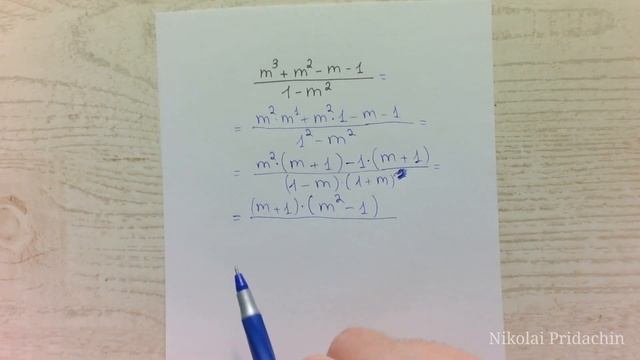 (m³ + m² - m - 1)/(1 - m²) =
= (m²·m¹ + m²·1 - m - 1)/(1² - m²) =
= (m²·(m + 1) - 1·(m + 1))/((1 - m)(1 + m)) =
= (m + 1)·(m² - 1)
Nikolai Pridachin